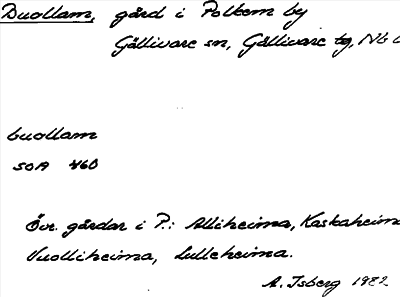 Duollam, gård i Polkem by
Gällivare sn, Gällivare tg, Nb l
buollam
SOA 460
Övr. gårdar i P.: Alliheima, Kaskaheima
Vuolliheima, Lulleheima.
A. Isberg 1982